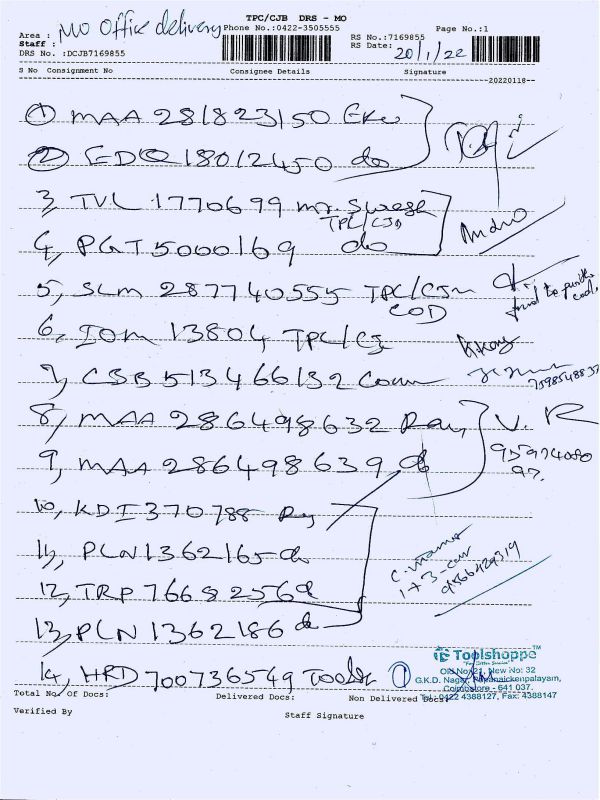 TPC/CJB DRS - MO
MO Office delivery Phone No.:0422-3505555 Page No.:1
Area :
Staff :
RS No.:7169855
DRS No. :DCJB7169855
RS Date: 20/1/22
S No Consignment No Consignee Details Signature
20220118
1 MAA 281823150
2 EDQ 18012450 do
3, TVL 1770699 mr. Suresh
TPC/CJB
4, PGT 5000169 do
5, SLM 287740555 TPC/CJB
COD
6, IOM 13804 TPC/CJ
7, CSB 513466132
7598548837
8, MAA 286498632 Ray
V. R
9, MAA 286498639 do
95974080
97.
10, KDI 370788 Ray
11, PLN 1362165 do
1+3-
9566429319
12, TRP 76682569
13, PLN 1362186 do
14, HRD 700736549 Tools 1
Toolshoppe™
Old No: 21, New No: 32
G.K.D. Nagar, Papanaickenpalayam,
Coimbatore - 641 037.
Tel: 0422 4388127, Fax: 4388147
Total No. Of Docs: Delivered Docs: Non Delivered Docs:
Verified By Staff Signature